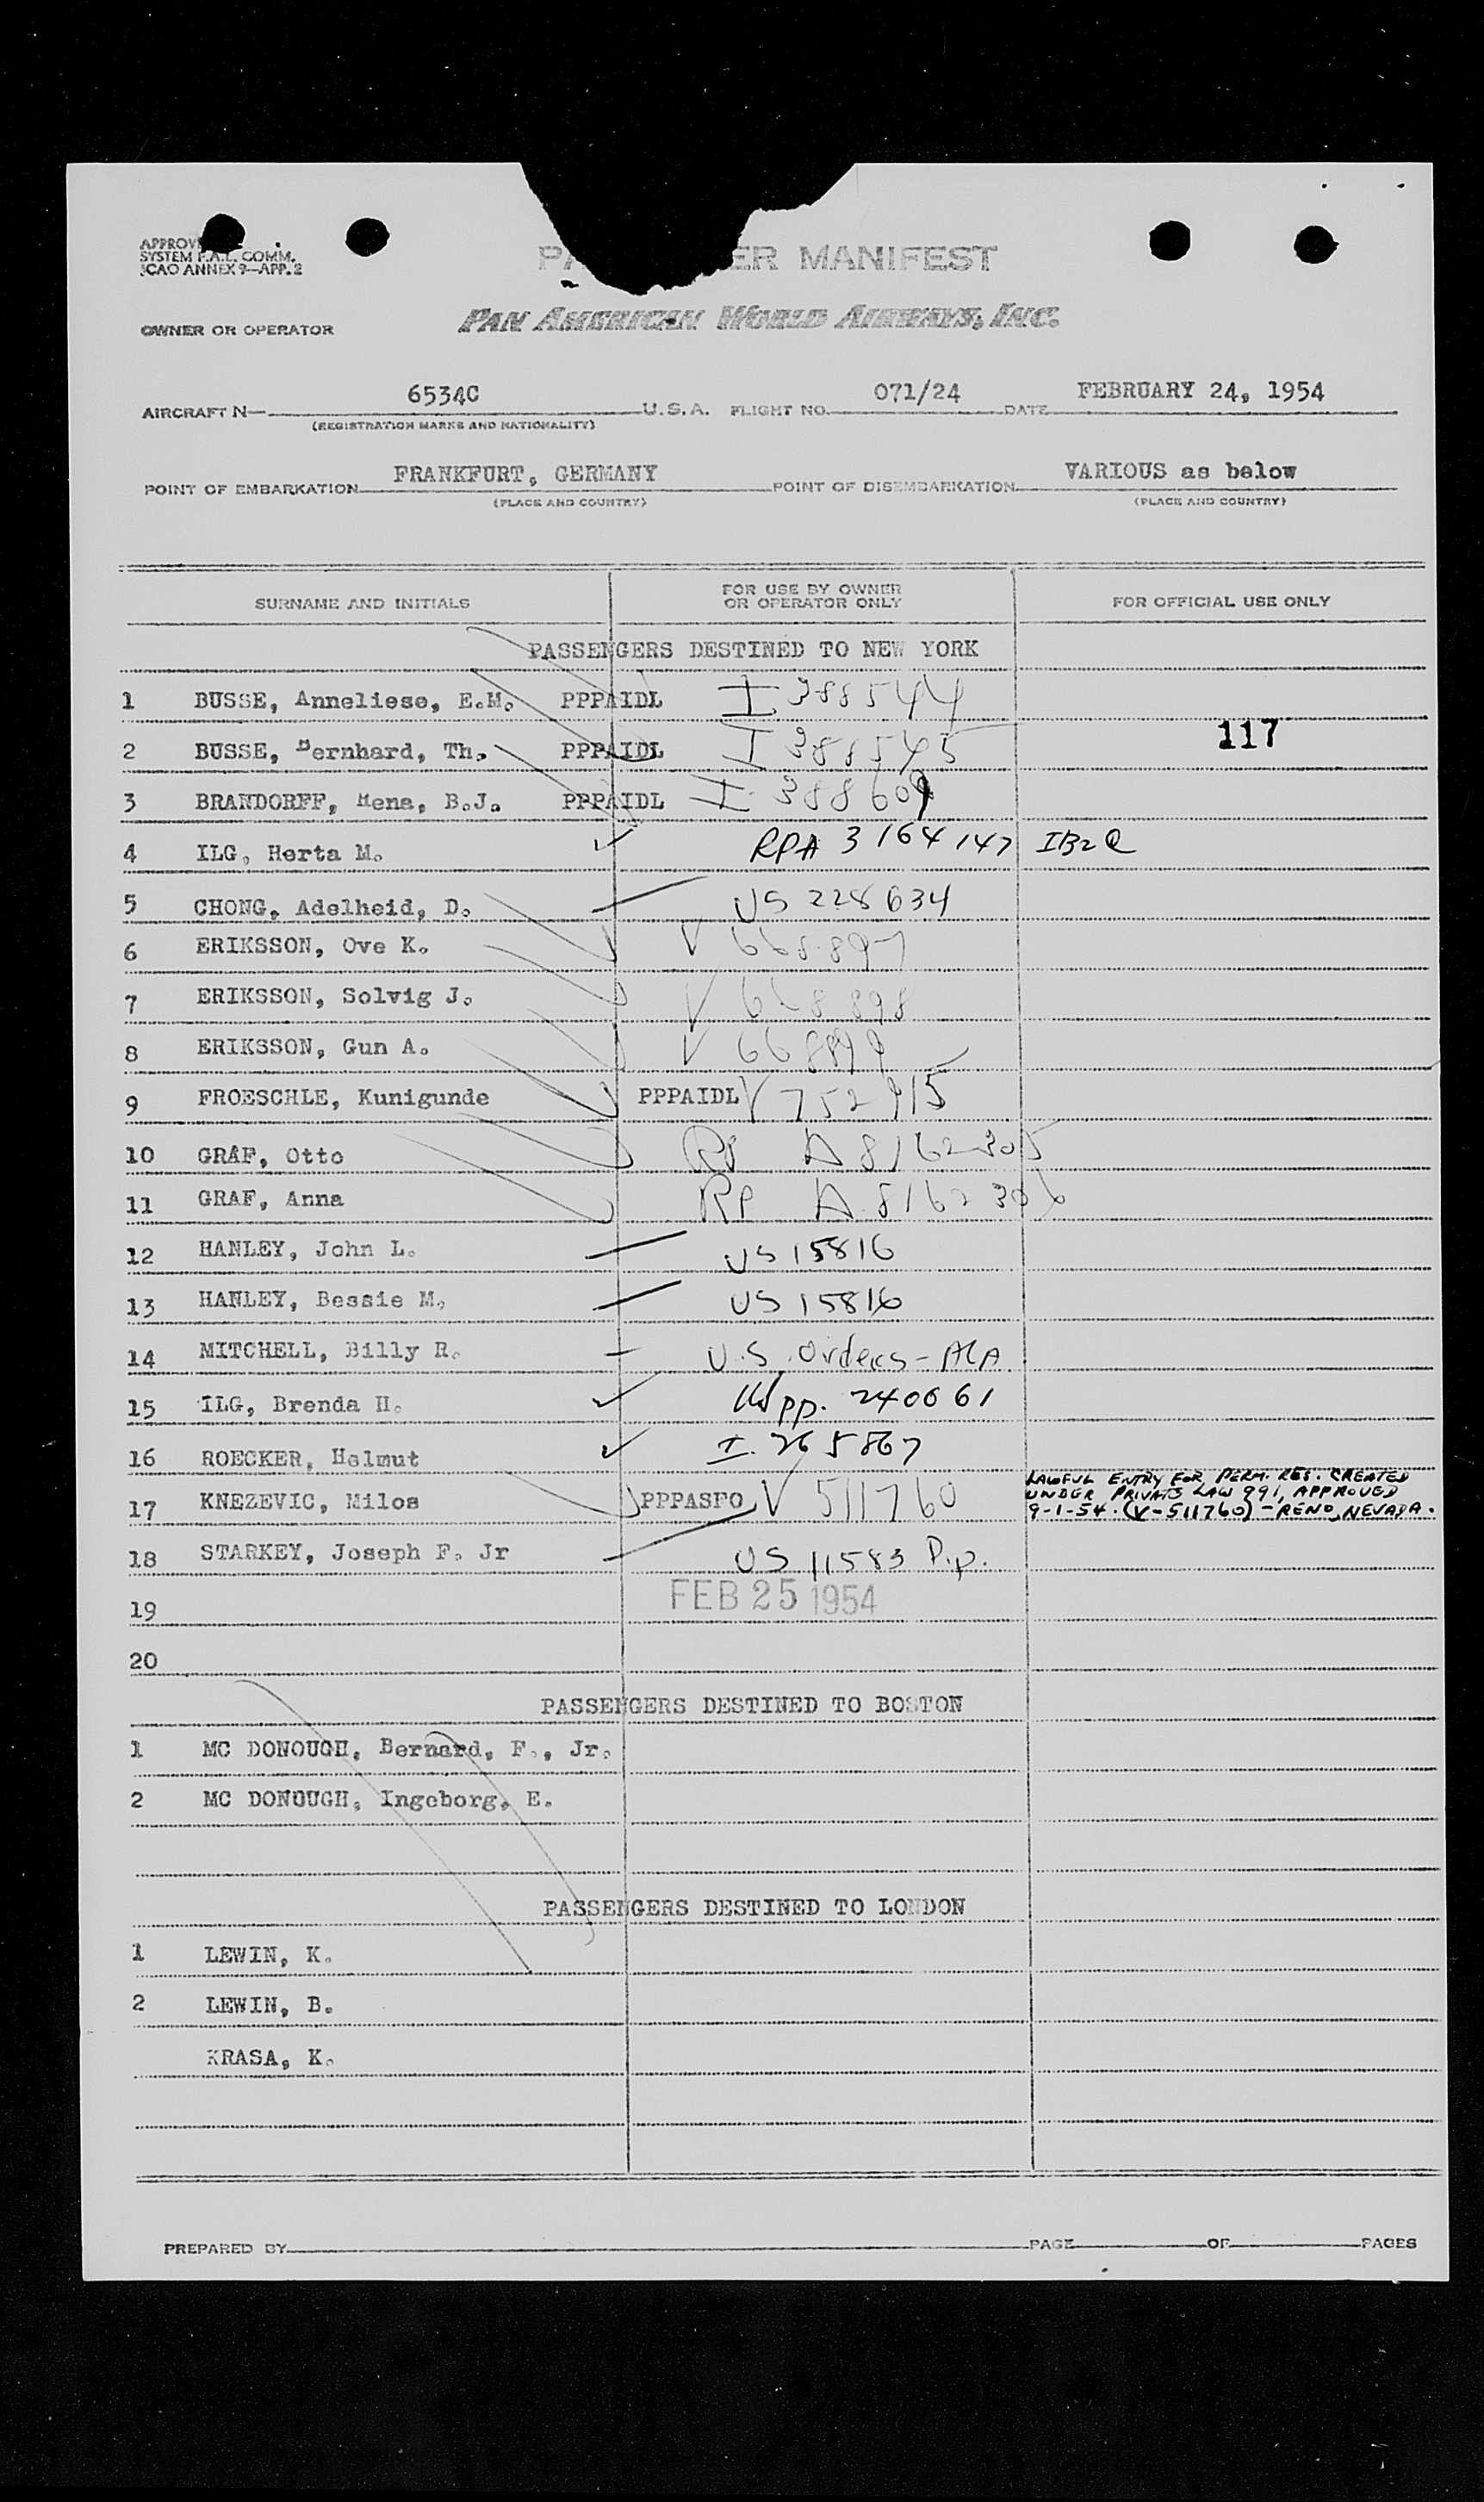 SYSTEM F.A.L. COMM.
ICAO ANNEX 9—APP. 2
MANIFEST
OWNER OR OPERATOR PAN AMERICAN WORLD AIRWAYS, INC.
AIRCRAFT N— 6534C U.S.A. FLIGHT NO. 071/24 DATE FEBRUARY 24, 1954
(REGISTRATION MARKS AND NATIONALITY)
POINT OF EMBARKATION FRANKFURT, GERMANY POINT OF DISEMBARKATION VARIOUS as below
(PLACE AND COUNTRY) (PLACE AND COUNTRY)
SURNAME AND INITIALS FOR USE BY OWNER OR OPERATOR ONLY FOR OFFICIAL USE ONLY
PASSENGERS DESTINED TO NEW YORK
1 BUSSE, Anneliese, E.M. PPPAIDL I 388544
2 BUSSE, Bernhard, Th. PPPAIDL I 388545 117
3 BRANDORFF, Mena, B.J. PPPAIDL I 388609
4 ILG, Herta M. RPA 3164147 IB2Q
5 CHONG, Adelheid, D. US 228634
6 ERIKSSON, Ove K. V 668897
7 ERIKSSON, Solvig J. V 668898
8 ERIKSSON, Gun A. V 668899
9 FROESCHLE, Kunigunde PPPAIDL V 752915
10 GRAF, Otto RP A 8162305
11 GRAF, Anna RP A 8162306
12 HANLEY, John L. US 15816
13 HANLEY, Bessie M. US 15816
14 MITCHELL, Billy R. U.S. Orders -
15 ILG, Brenda H. pp. 240061
16 ROECKER, Helmut I. 265867
17 KNEZEVIC, Milos PPPASFO V 511760 LAWFUL ENTRY FOR PERM. RES. CREATED
UNDER PRIVATE LAW 991, APPROVED
9-1-54. (V-511760) - RENO, NEVADA.
18 STARKEY, Joseph F. Jr US 11583 P.p.
FEB 25 1954
19
20
PASSENGERS DESTINED TO BOSTON
1 MC DONOUGH, Bernard, F., Jr.
2 MC DONOUGH, Ingeborg, E.
PASSENGERS DESTINED TO LONDON
1 LEWIN, K.
2 LEWIN, B.
KRASA, K.
PREPARED BY PAGE OF PAGES